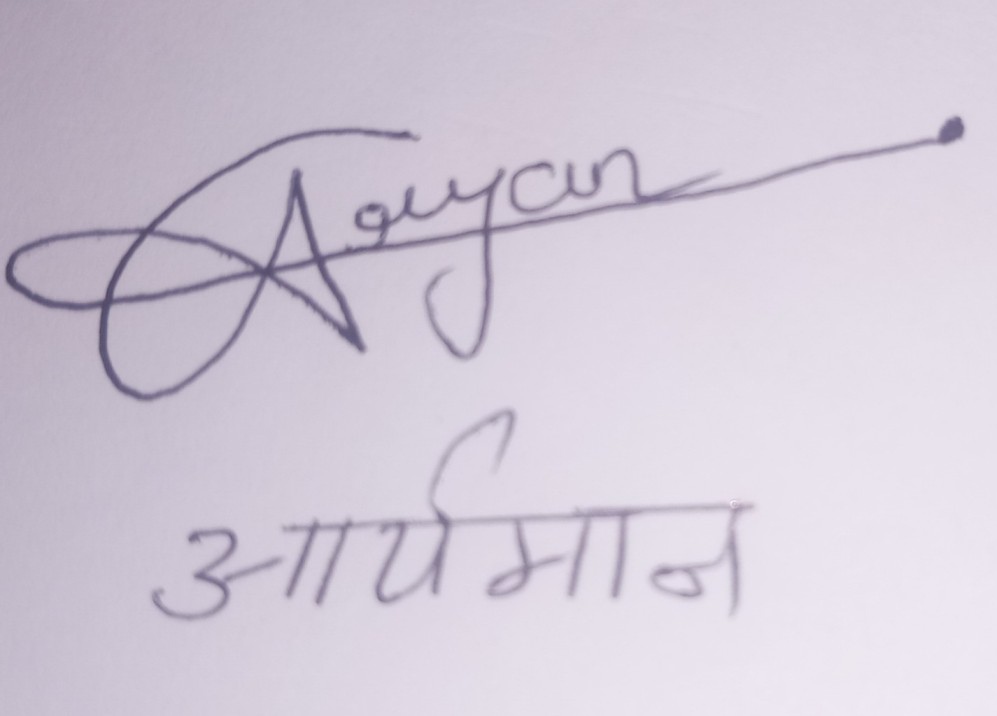 Aryan
आर्यमान